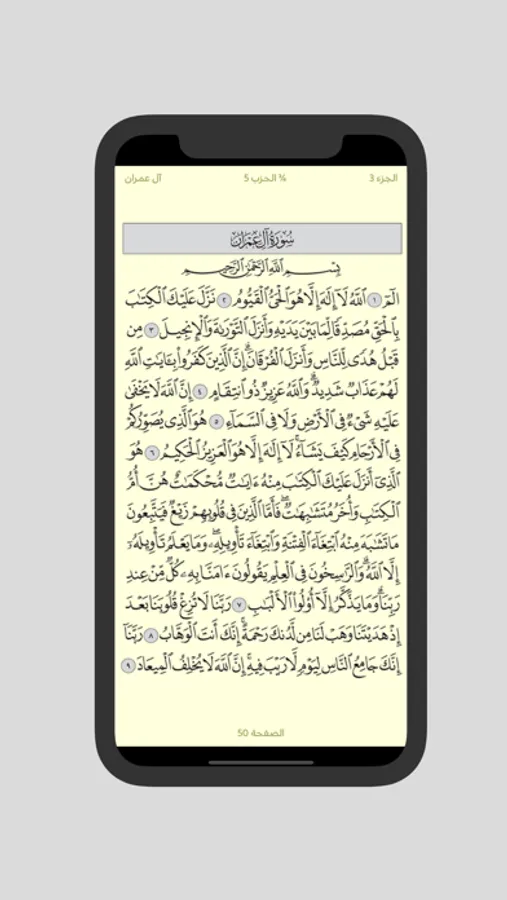 الجزء 3 ¾ الحزب 5 آل عمران
سُورَةُ آلِ عِمۡرَانَ
بِسۡمِ ٱللَّهِ ٱلرَّحۡمَٰنِ ٱلرَّحِيمِ
الٓمٓ ١ ٱللَّهُ لَآ إِلَٰهَ إِلَّا هُوَ ٱلۡحَيُّ ٱلۡقَيُّومُ ٢ نَزَّلَ عَلَيۡكَ ٱلۡكِتَٰبَ
بِٱلۡحَقِّ مُصَدِّقٗا لِّمَا بَيۡنَ يَدَيۡهِ وَأَنزَلَ ٱلتَّوۡرَىٰةَ وَٱلۡإِنجِيلَ ٣ مِن
قَبۡلُ هُدٗى لِّلنَّاسِ وَأَنزَلَ ٱلۡفُرۡقَانَۗ إِنَّ ٱلَّذِينَ كَفَرُواْ بِـَٔايَٰتِ ٱللَّهِ
لَهُمۡ عَذَابٞ شَدِيدٞۗ وَٱللَّهُ عَزِيزٞ ذُو ٱنتِقَامٍ ٤ إِنَّ ٱللَّهَ لَا يَخۡفَىٰ
عَلَيۡهِ شَيۡءٞ فِي ٱلۡأَرۡضِ وَلَا فِي ٱلسَّمَآءِ ٥ هُوَ ٱلَّذِي يُصَوِّرُكُمۡ
فِي ٱلۡأَرۡحَامِ كَيۡفَ يَشَآءُۚ لَآ إِلَٰهَ إِلَّا هُوَ ٱلۡعَزِيزُ ٱلۡحَكِيمُ ٦ هُوَ
ٱلَّذِيٓ أَنزَلَ عَلَيۡكَ ٱلۡكِتَٰبَ مِنۡهُ ءَايَٰتٞ مُّحۡكَمَٰتٌ هُنَّ أُمُّ
ٱلۡكِتَٰبِ وَأُخَرُ مُتَشَٰبِهَٰتٞۖ فَأَمَّا ٱلَّذِينَ فِي قُلُوبِهِمۡ زَيۡغٞ فَيَتَّبِعُونَ
مَا تَشَٰبَهَ مِنۡهُ ٱبۡتِغَآءَ ٱلۡفِتۡنَةِ وَٱبۡتِغَآءَ تَأۡوِيلِهِۦۖ وَمَا يَعۡلَمُ تَأۡوِيلَهُۥٓ
إِلَّا ٱللَّهُۗ وَٱلرَّٰسِخُونَ فِي ٱلۡعِلۡمِ يَقُولُونَ ءَامَنَّا بِهِۦ كُلّٞ مِّنۡ عِندِ
رَبِّنَاۗ وَمَا يَذَّكَّرُ إِلَّآ أُوْلُواْ ٱلۡأَلۡبَٰبِ ٧ رَبَّنَا لَا تُزِغۡ قُلُوبَنَا بَعۡدَ
إِذۡ هَدَيۡتَنَا وَهَبۡ لَنَا مِن لَّدُنكَ رَحۡمَةًۚ إِنَّكَ أَنتَ ٱلۡوَهَّابُ ٨ رَبَّنَآ
إِنَّكَ جَامِعُ ٱلنَّاسِ لِيَوۡمٖ لَّا رَيۡبَ فِيهِۚ إِنَّ ٱللَّهَ لَا يُخۡلِفُ ٱلۡمِيعَادَ ٩
الصفحة 50